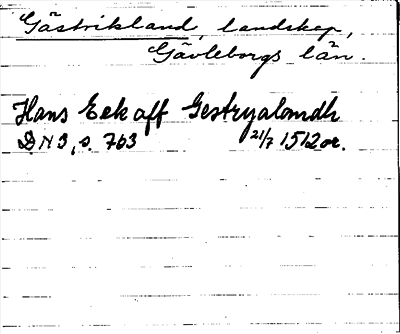 Gästrikland, landskap,
Gävleborgs län.
Hans Eek aff Gestryalandh
D.N 3, s. 763 21/7 1512 or.